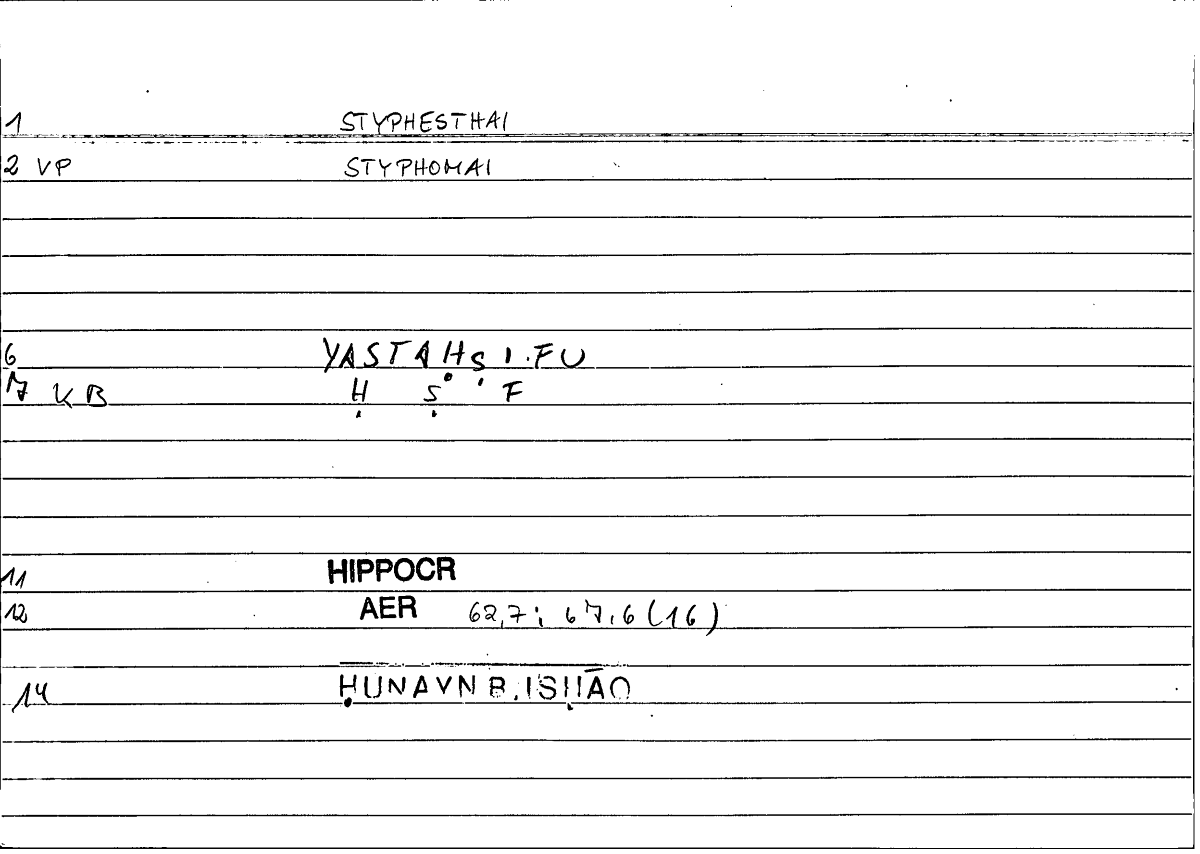 1 STYPHESTHAI
2 VP STYPHOMAI
6 YASTAḤṢI.FU
7 KB Ḥ Ṣ F
11 HIPPOCR
12 AER 62,7; 67,6 (16)
14 ḤUNAYN B. ISḤĀQ